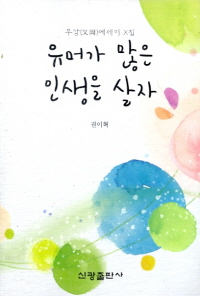 우강(又岡)에세이 X집
유머가 많은
인생을 살자
권이혁
신광출판사